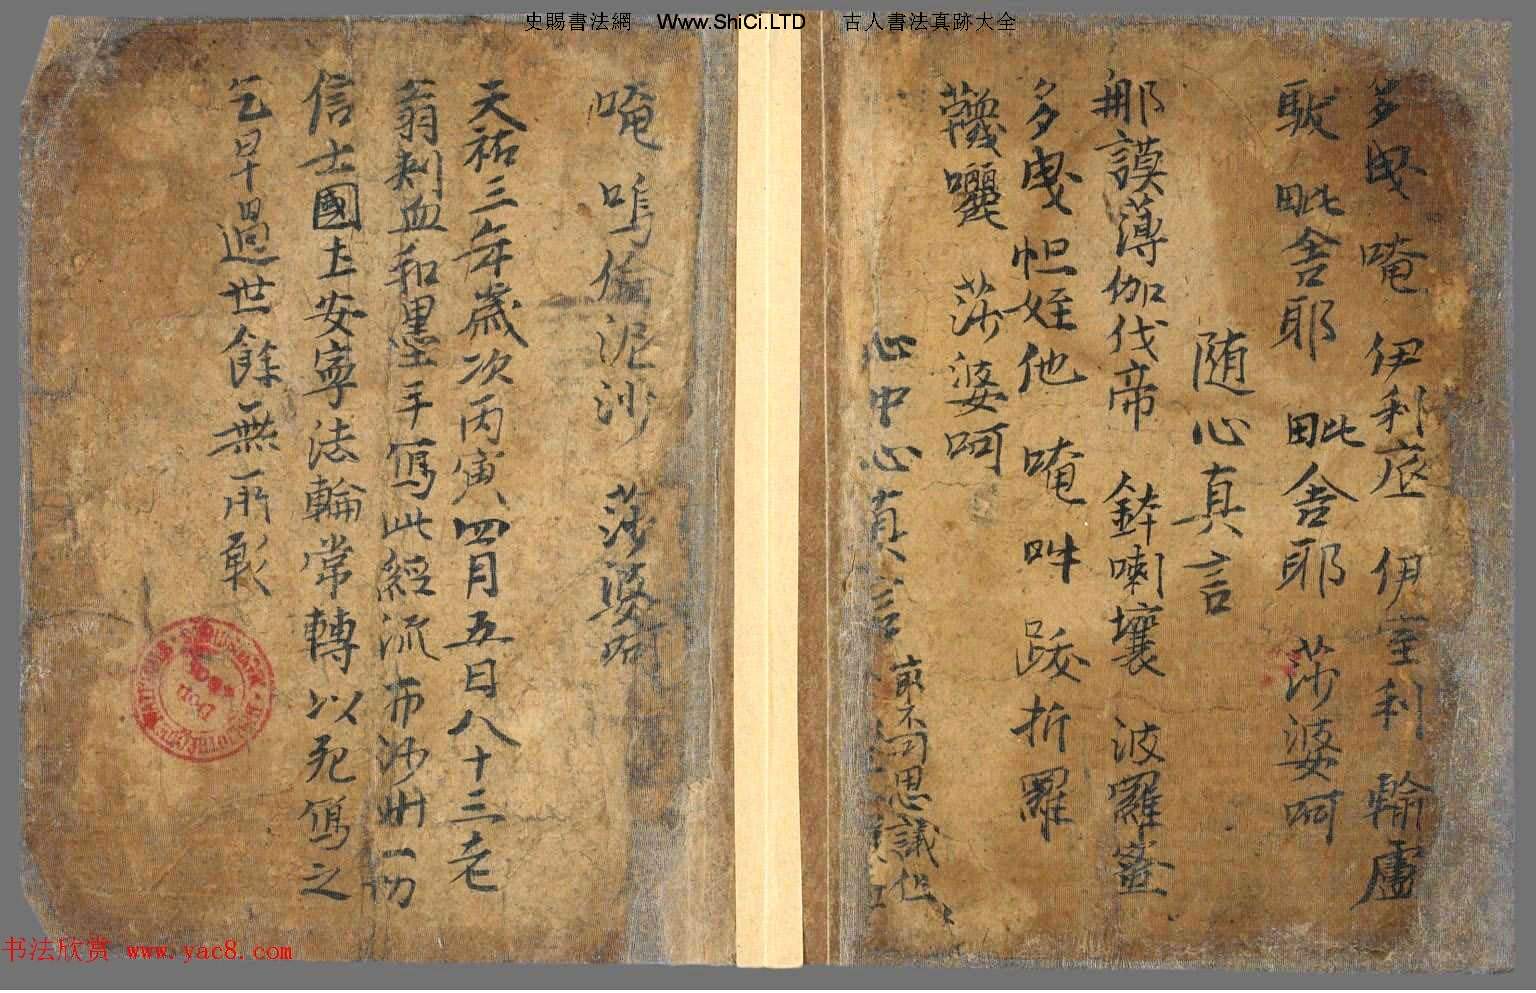 史賜書法網 Www.ShiCi.LTD 古人書法真跡大全
多曳 唵 伊利底 伊室利 輸盧
馱 毗舍耶 毗舍耶 莎婆呵
随心真言
那謨薄伽伐帝 鉢喇壤 波羅蜜
多曳 怛姪他 唵 吽 折羅
莎婆呵
心中心真言
不可思議
唵 嗚倫泥沙 莎婆呵
天祐三年歲次丙寅四月五日八十三老
翁刺血和墨手寫此經流布沙州一切
信士國土安寧法輪常轉以死寫之
乞早過世餘無所
书法欣赏 www.yac8.com